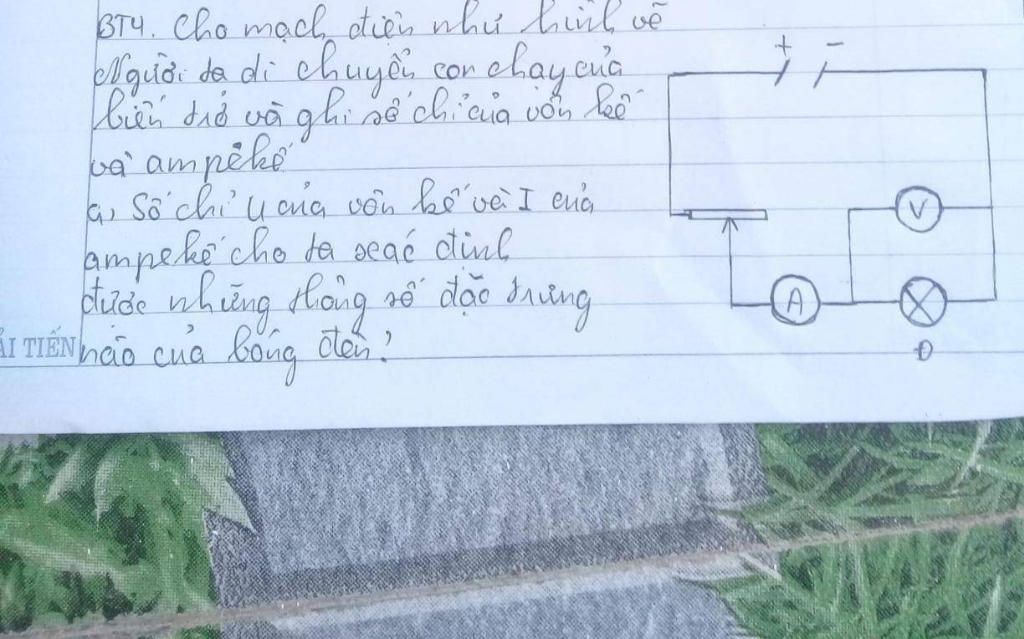 BT4. Cho mạch điện như hình vẽ
Người ta di chuyển con chạy của
biến trở và ghi số chỉ của vôn kế
và ampekế
a, Số chỉ U của vôn kế và I của
ampekế cho ta xác định
được những thông số đặc trưng
nào của bóng đèn?
ẢI TIẾN
+ -
V
A
Đ